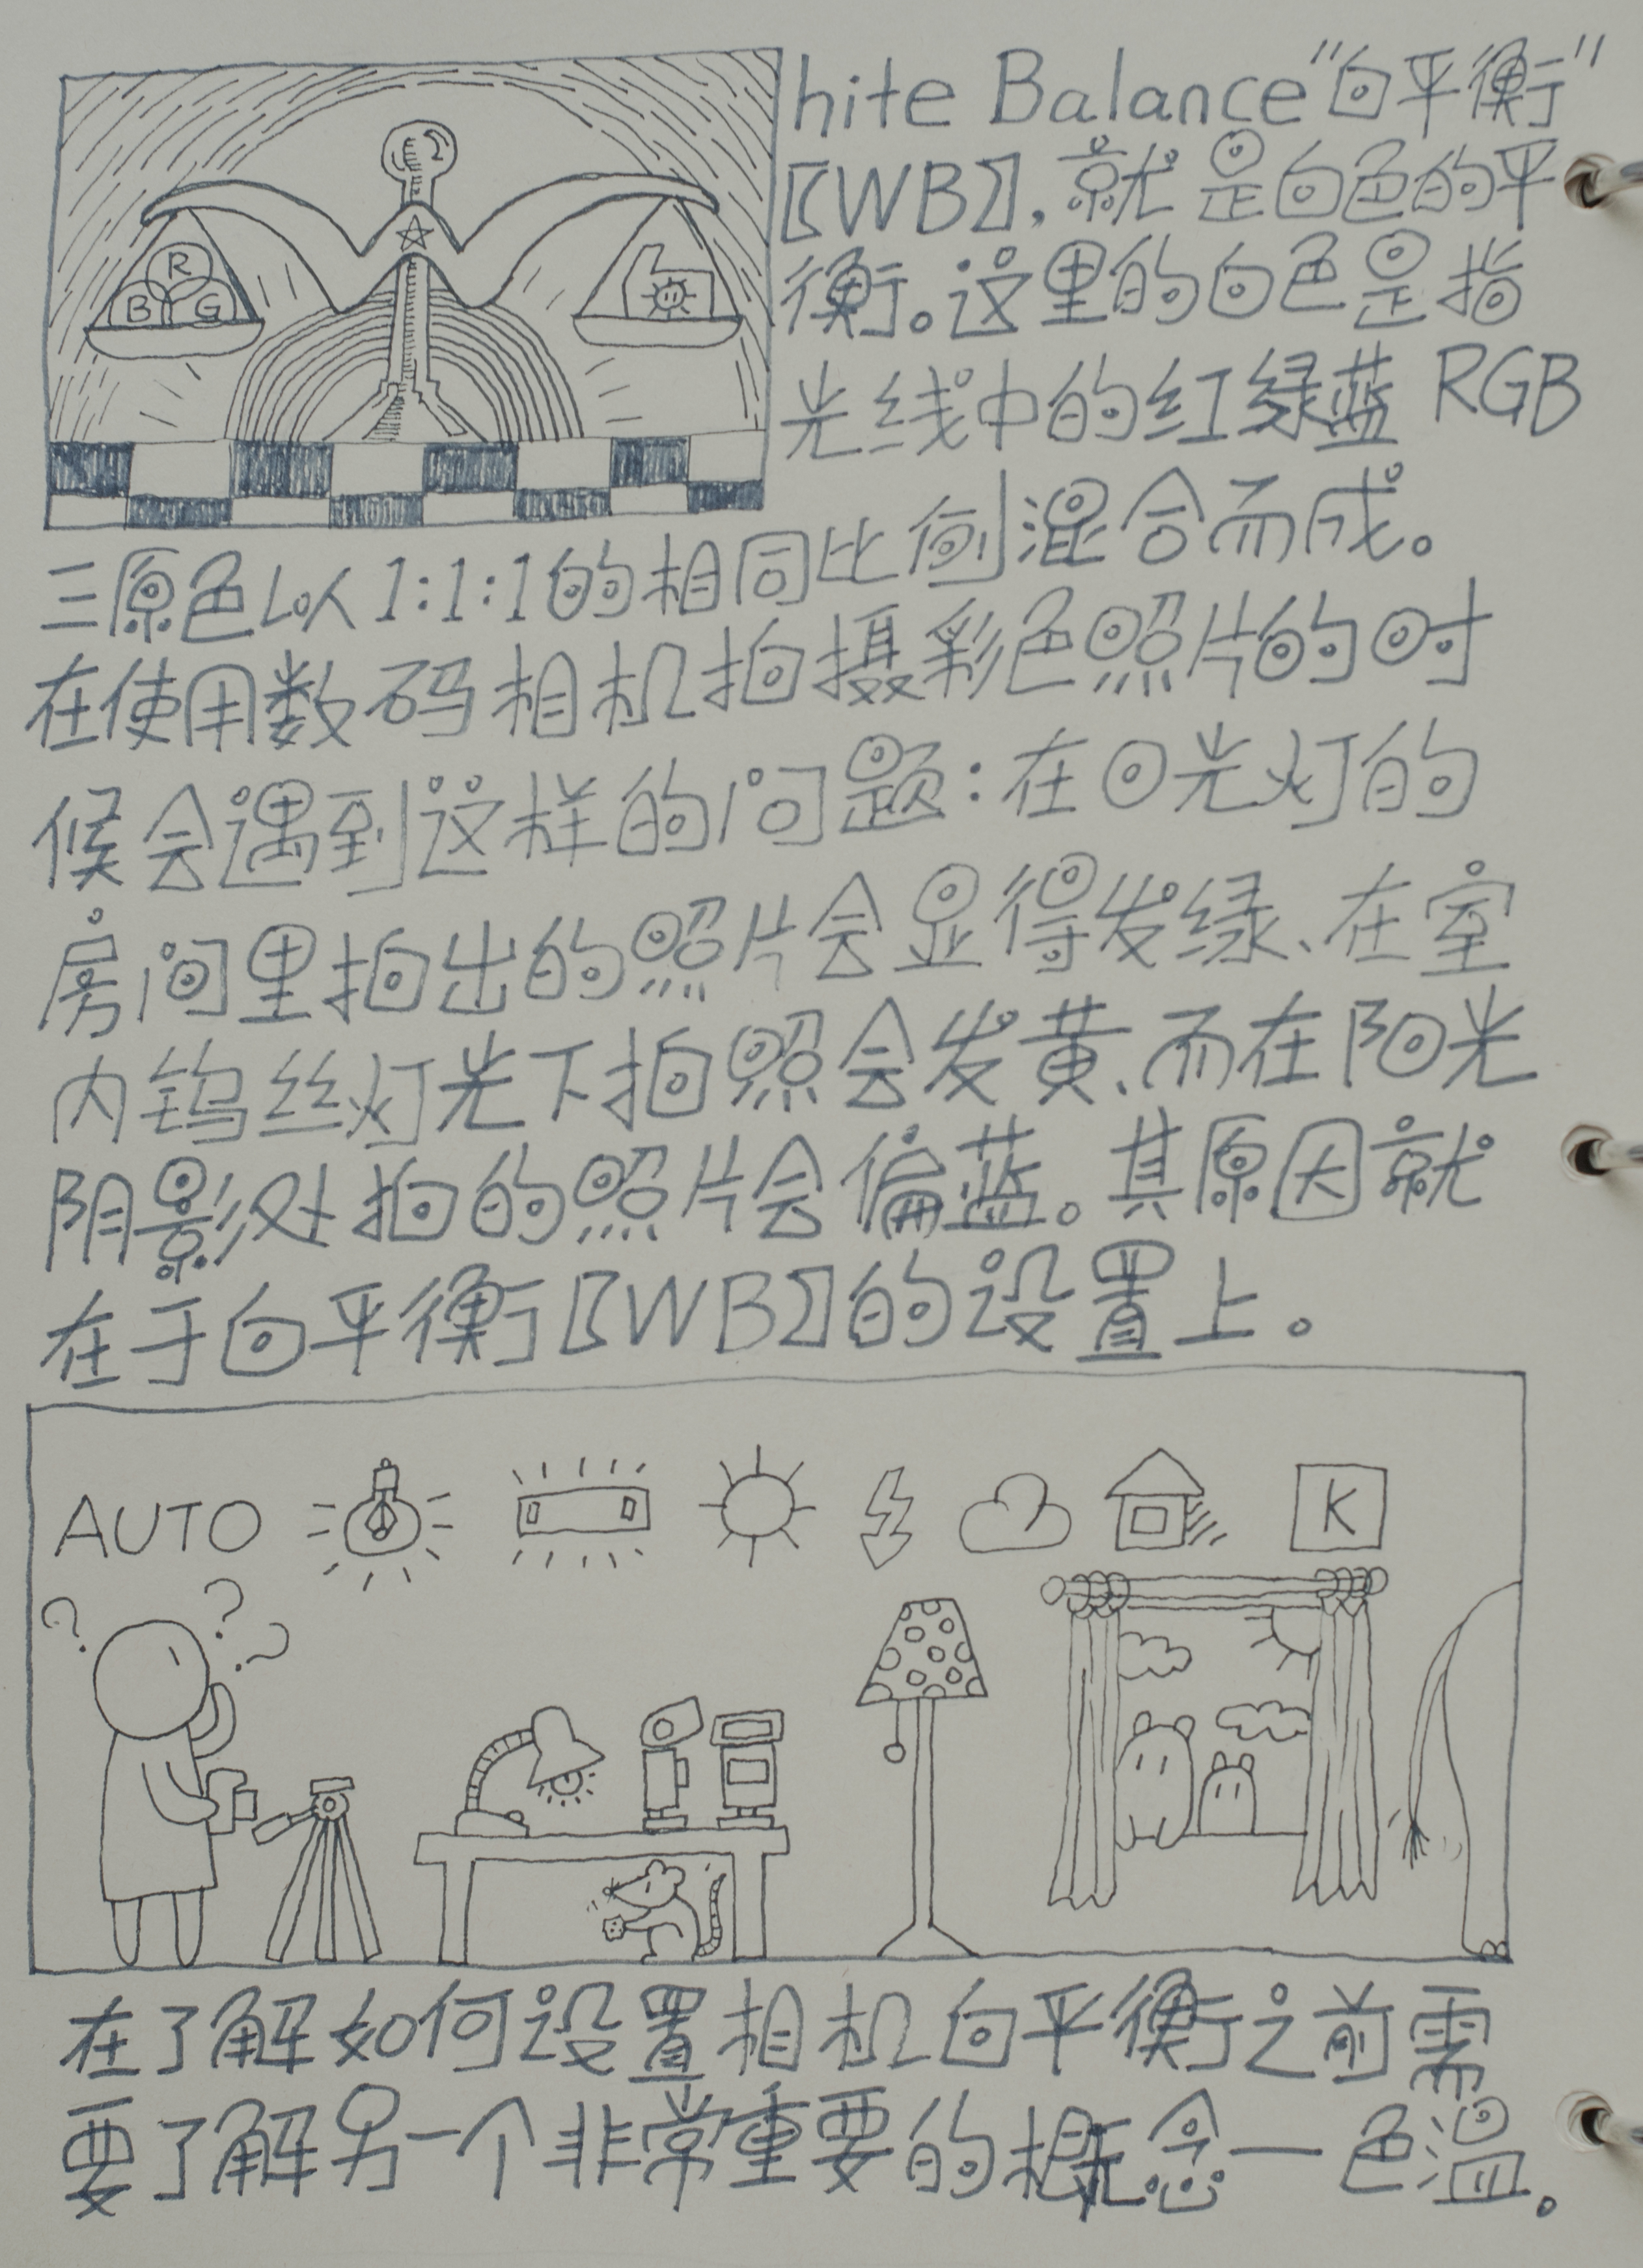 R
B G
hite Balance"白平衡"
〖WB〗,就是白色的平
衡。这里的白色是指
光线中的红绿蓝 RGB
三原色以1:1:1的相同比例混合而成。
在使用数码相机拍摄彩色照片的时
候会遇到这样的问题:在日光灯的
房间里拍出的照片会显得发绿、在室
内钨丝灯光下拍照会发黄、而在阳光
阴影处拍的照片会偏蓝。其原因就
在于白平衡〖WB〗的设置上。
AUTO K
? ? ?
在了解如何设置相机白平衡之前需
要了解另一个非常重要的概念一色温。